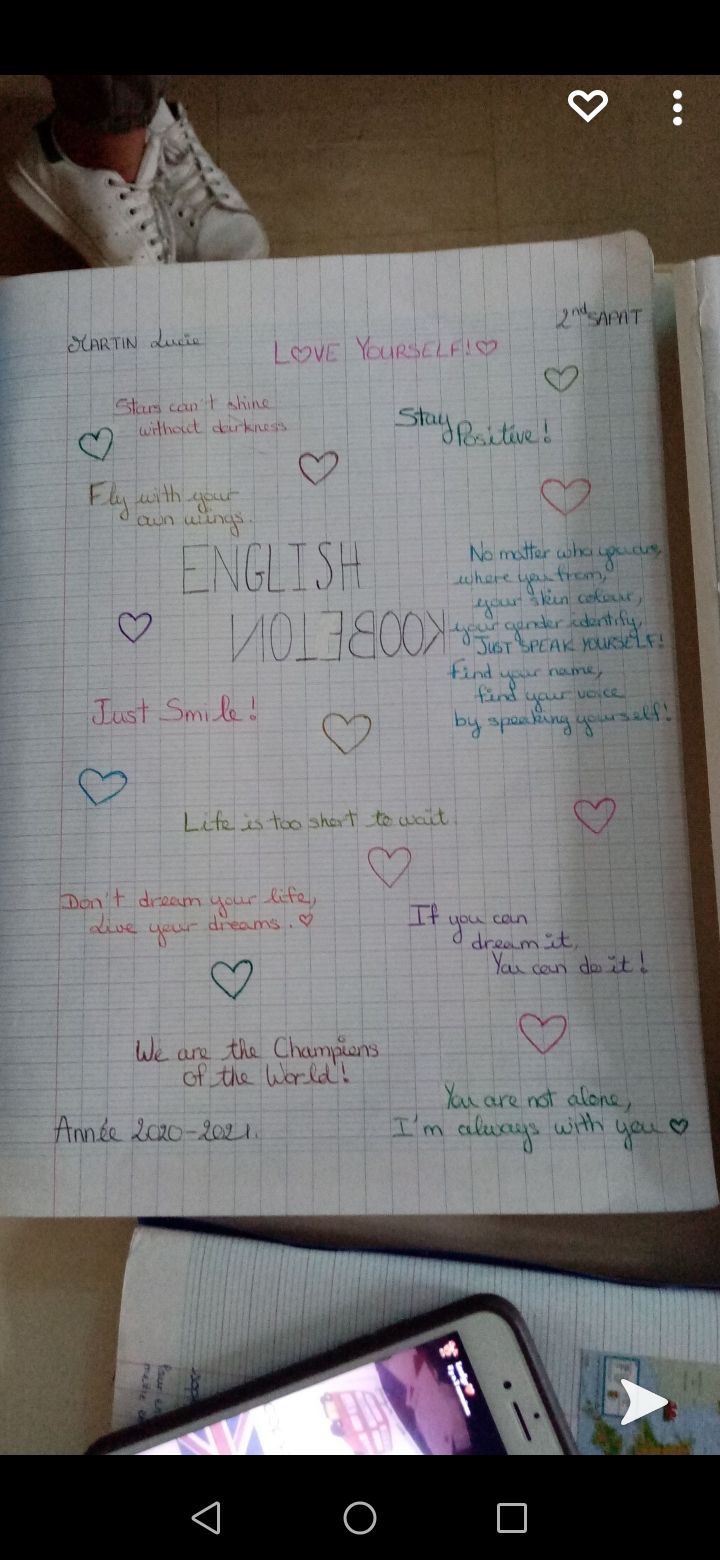 MARTIN Lucie
2nd SAPAT
LOVE YOURSELF!
Stars can't shine
without darkness
Stay
Positive!
Fly with your
own wings.
ENGLISH
NOTEBOOK
No matter who you are,
where you from,
your skin colour,
your gender identify,
JUST SPEAK YOURSELF!
find your name,
find your voice
by speaking yourself!
Just Smile!
Life is too short to wait.
Don't dream your life,
Live your dreams.
If you can
dream it,
You can do it!
We are the Champions
of the World!
You are not alone,
I'm always with you
Année 2020-2021.